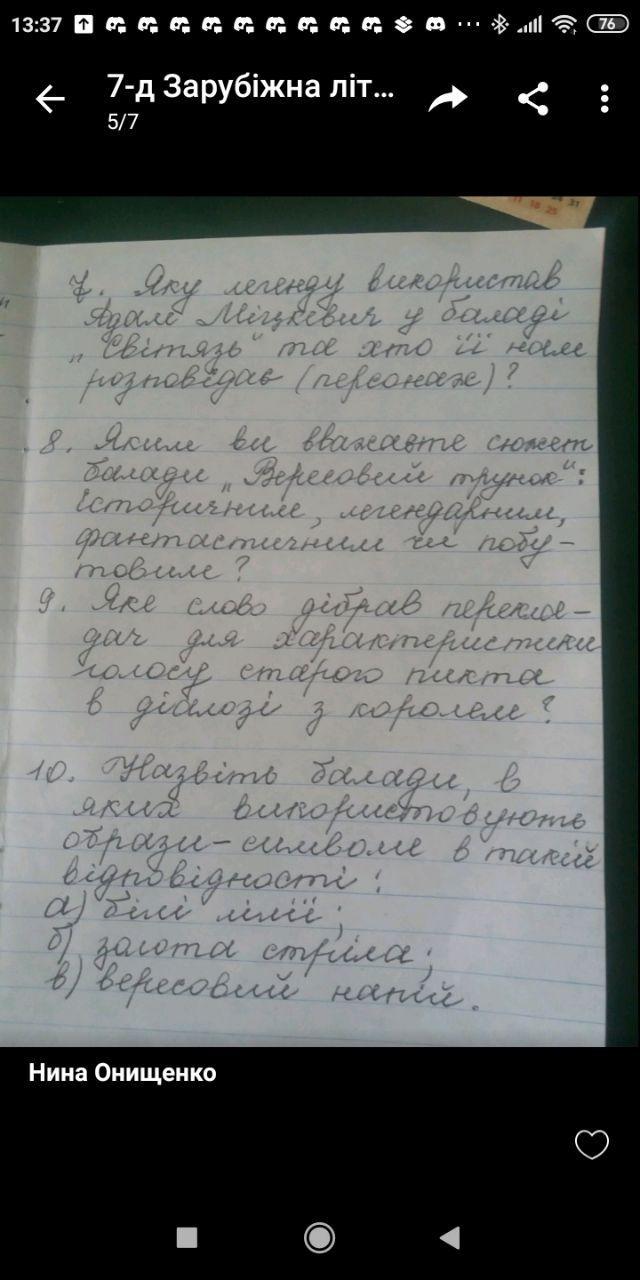 13:37
76
7-д Зарубіжна літ...
5/7
31
11 18 25
7. Яку легенду використав
Адам Міцкевич у баладі
„Світязь" та хто її нам
розповідає (персонаж)?
8. Яким ви вважаєте сюжет
балади „Вересовий трунок":
історичним, легендарним,
фантастичним чи побу-
товим?
9. Яке слово дібрав перекла-
дач для характеристики
голосу старого пикта
в діалозі з королем?
10. Назвіть балади, в
яких використовують
образи-символи в такій
відповідності:
а) білі лілії;
б) золота стріла;
в) вересовий напій.
Нина Онищенко